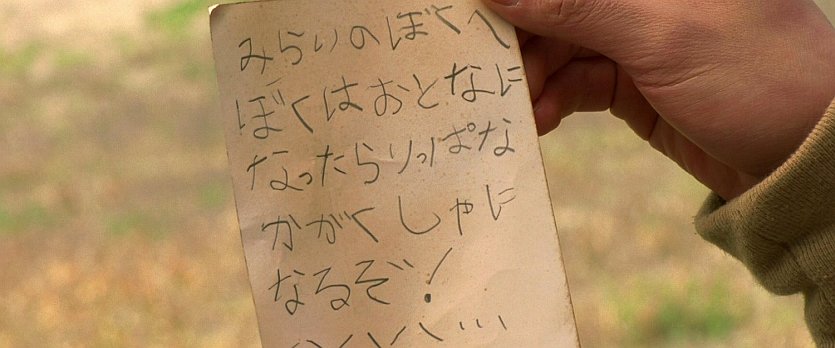 みらいのぼくへ
ぼくはおとなに
なったらりっぱな
かがくしゃに
なるぞ!